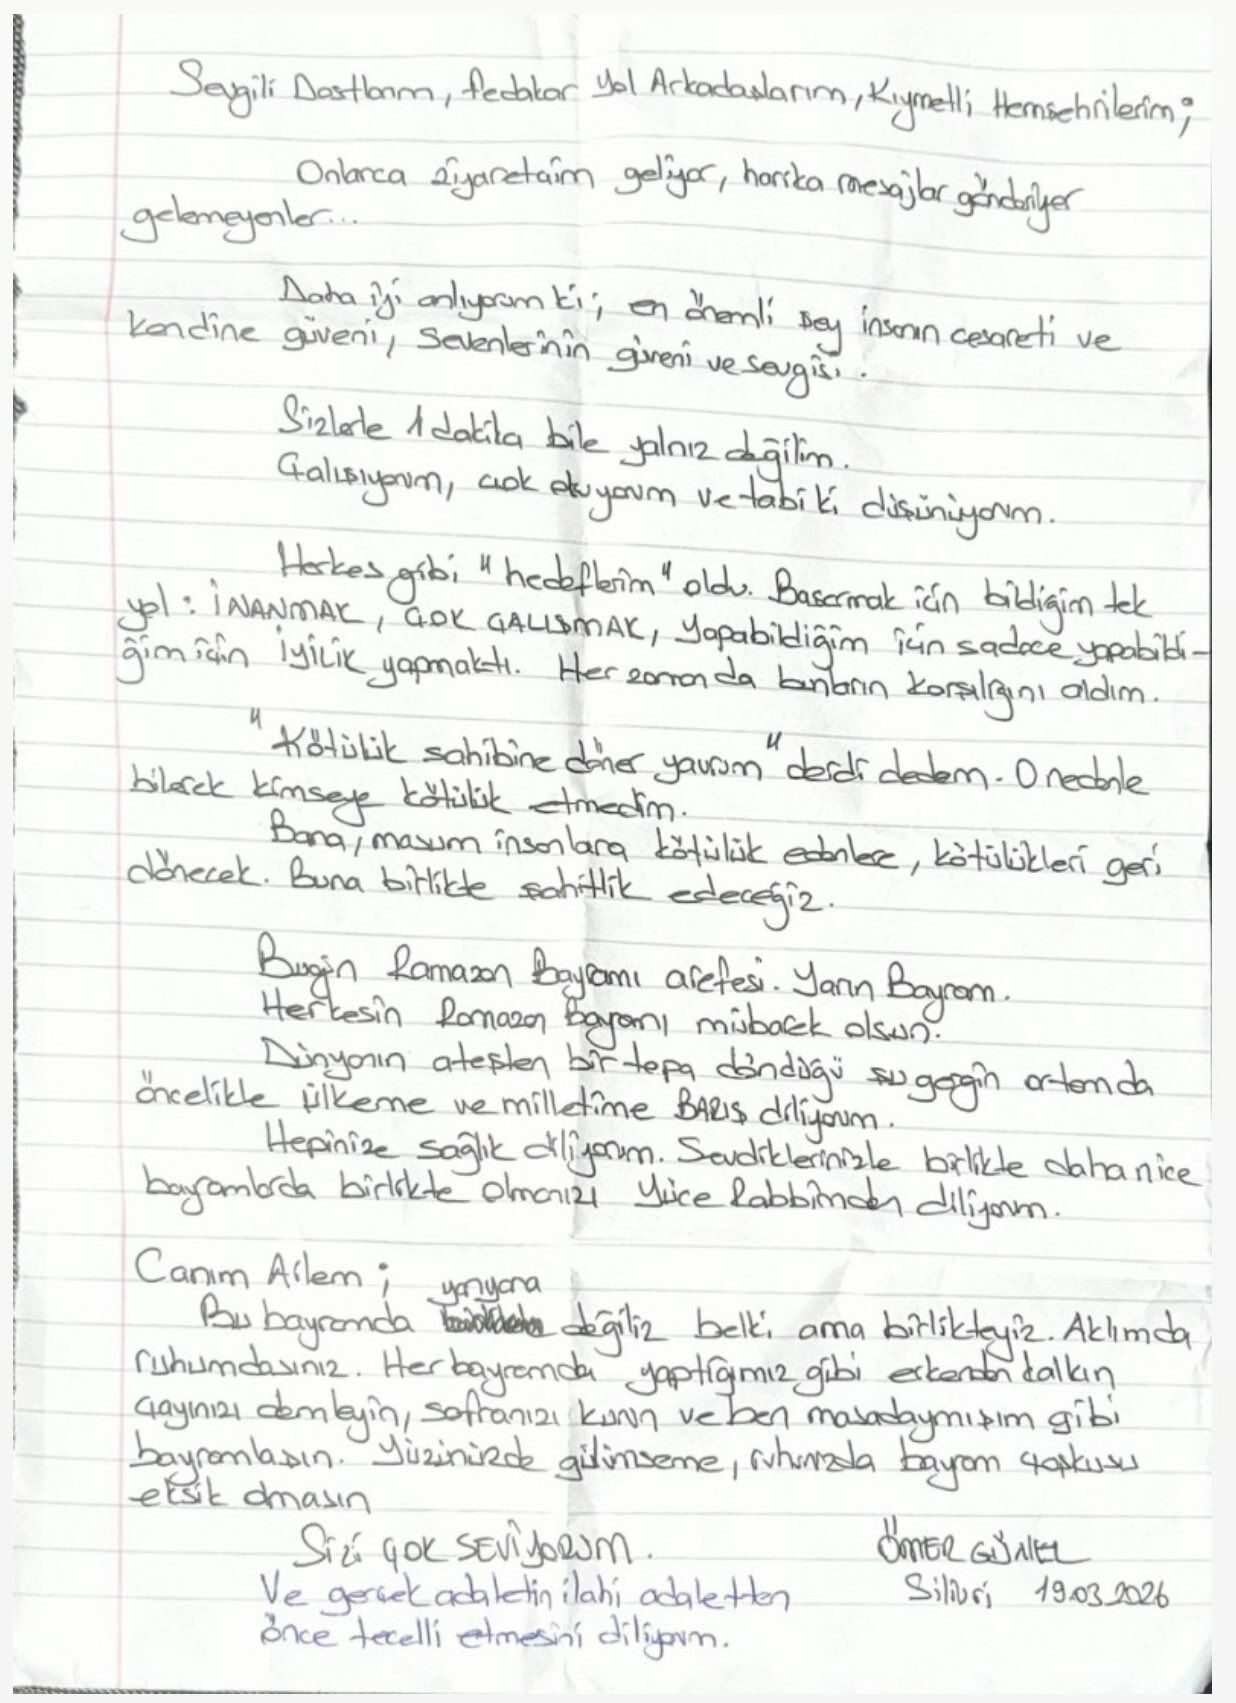 Sevgili Dostlarım, fedakar Yol Arkadaşlarım, Kıymetli Hemşehrilerim;
Onlarca ziyaretçim geliyor, harika mesajlar gönderiyor
gelemeyenler...
Daha iyi anlıyorum ki; en önemli şey insanın cesareti ve
kendine güveni, sevenlerinin güveni ve sevgisi.
Sizlerle 1 dakika bile yalnız değilim.
Çalışıyorum, çok okuyorum ve tabi ki düşünüyorum.
Herkes gibi "hedeflerim" oldu. Başarmak için bildiğim tek
yol: İNANMAK, ÇOK ÇALIŞMAK, yapabildiğim için sadece yapabildi-
ğim için İYİLİK yapmaktı. Her zaman da bunların karşılığını aldım.
"Kötülük sahibine döner yavrum" derdi dedem. O nedenle
bilerek kimseye kötülük etmedim.
Bana, masum insanlara kötülük edenlere, kötülükleri geri
dönecek. Buna birlikte şahitlik edeceğiz.
Bugün Ramazan Bayramı arefesi. Yarın Bayram.
Herkesin Ramazan Bayramı mübarek olsun.
Dünyanın ateşten bir topa döndüğü şu gergin ortamda
öncelikle ülkeme ve milletime BARIŞ diliyorum.
Hepinize sağlık diliyorum. Sevdiklerinizle birlikte daha nice
bayramlarda birlikte olmanızı Yüce Rabbimden diliyorum.
Canım Ailem;
Bu bayramda yanyana değiliz belki ama birlikteyiz. Aklımda
ruhumdasınız. Her bayramda yaptığımız gibi erkenden kalkın
çayınızı demleyin, sofranızı kurun ve ben masadaymışım gibi
bayramlaşın. Yüzünüzde gülümseme, ruhunuzda bayram çoşkusu
eksik olmasın
Sizi ÇOK SEVİYORUM.
ÖMER GÜNEL
Ve gerçek adaletin ilahi adaletten
Silivri 19.03.2026
önce tecelli etmesini diliyorum.